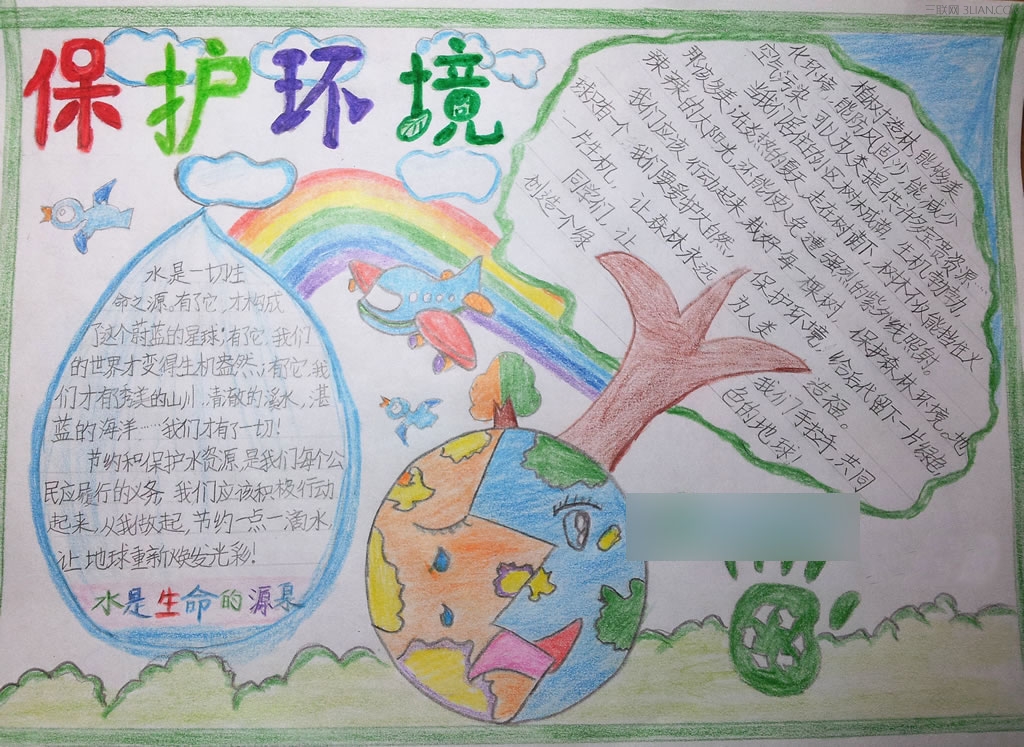 保护环境
水是一切生
命之源。有了它,才构成
了这个蔚蓝的星球;有了它,我们
的世界才变得生机盎然;有了它,我
们才有秀美的山川,清澈的溪水,湛
蓝的海洋……我们才有了一切!
节约和保护水资源,是我们每个公
民应履行的义务,我们应该积极行动
起来,从我做起,节约一点一滴水,
让地球重新焕发光彩!
水是生命的源泉
植树造林,能够美
化环境,能防风固沙,能减少
空气污染,可以为人类提供许多宝贵资源。
当我们居住的小区树林成荫,生机勃勃,
那该多美;在炎热的夏天,走在树荫下,树木不仅能挡住火
辣辣的太阳光,还能使人免遭强烈的紫外线照射。
我们应该行动起来,栽好每一棵树,保护森林环境。地
球只有一个,我们要爱护大自然,保护环境,给后代留下一片绿色
一片生机,让森林永远为人类造福。
同学们,让我们手拉手,共同
创造一个绿色的地球!
三联网 3LIAN.COM